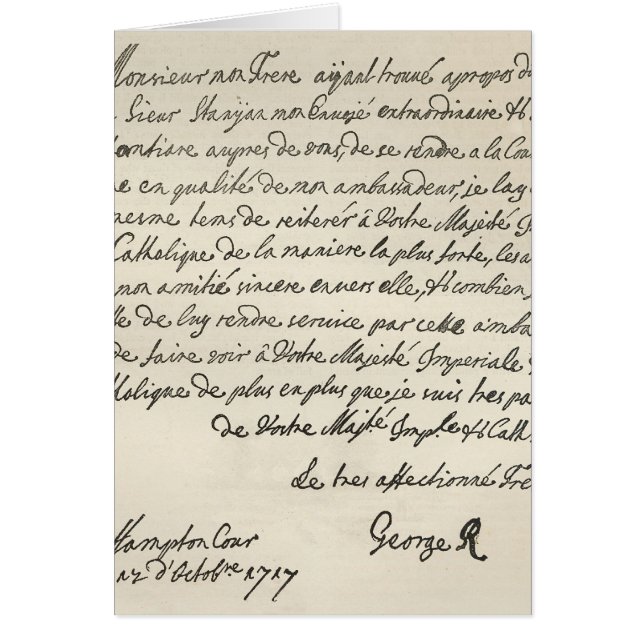 Monsieur mon Frere aijant trouvé apropos d
Sieur Stanijan mon Envojé extraordinaire &
tentiare aupres de vous, de se rendre a la Cou
e en qualité de mon ambassadeur, je lay
mesme tems de reiterér â Vostre Majesté J
Catholique de la maniere la plus forte, les a
mon amitié sincere envers elle, & combien
de luy rendre service par cette amba
de faire voir â Vostre Majesté Imperiale
tholique de plus en plus que je suis tres pa
de Vostre Majté. Imple. & Cath.
Le tres affectionné Fre
Hampton Cour
12 d'Octobre 1717
George R